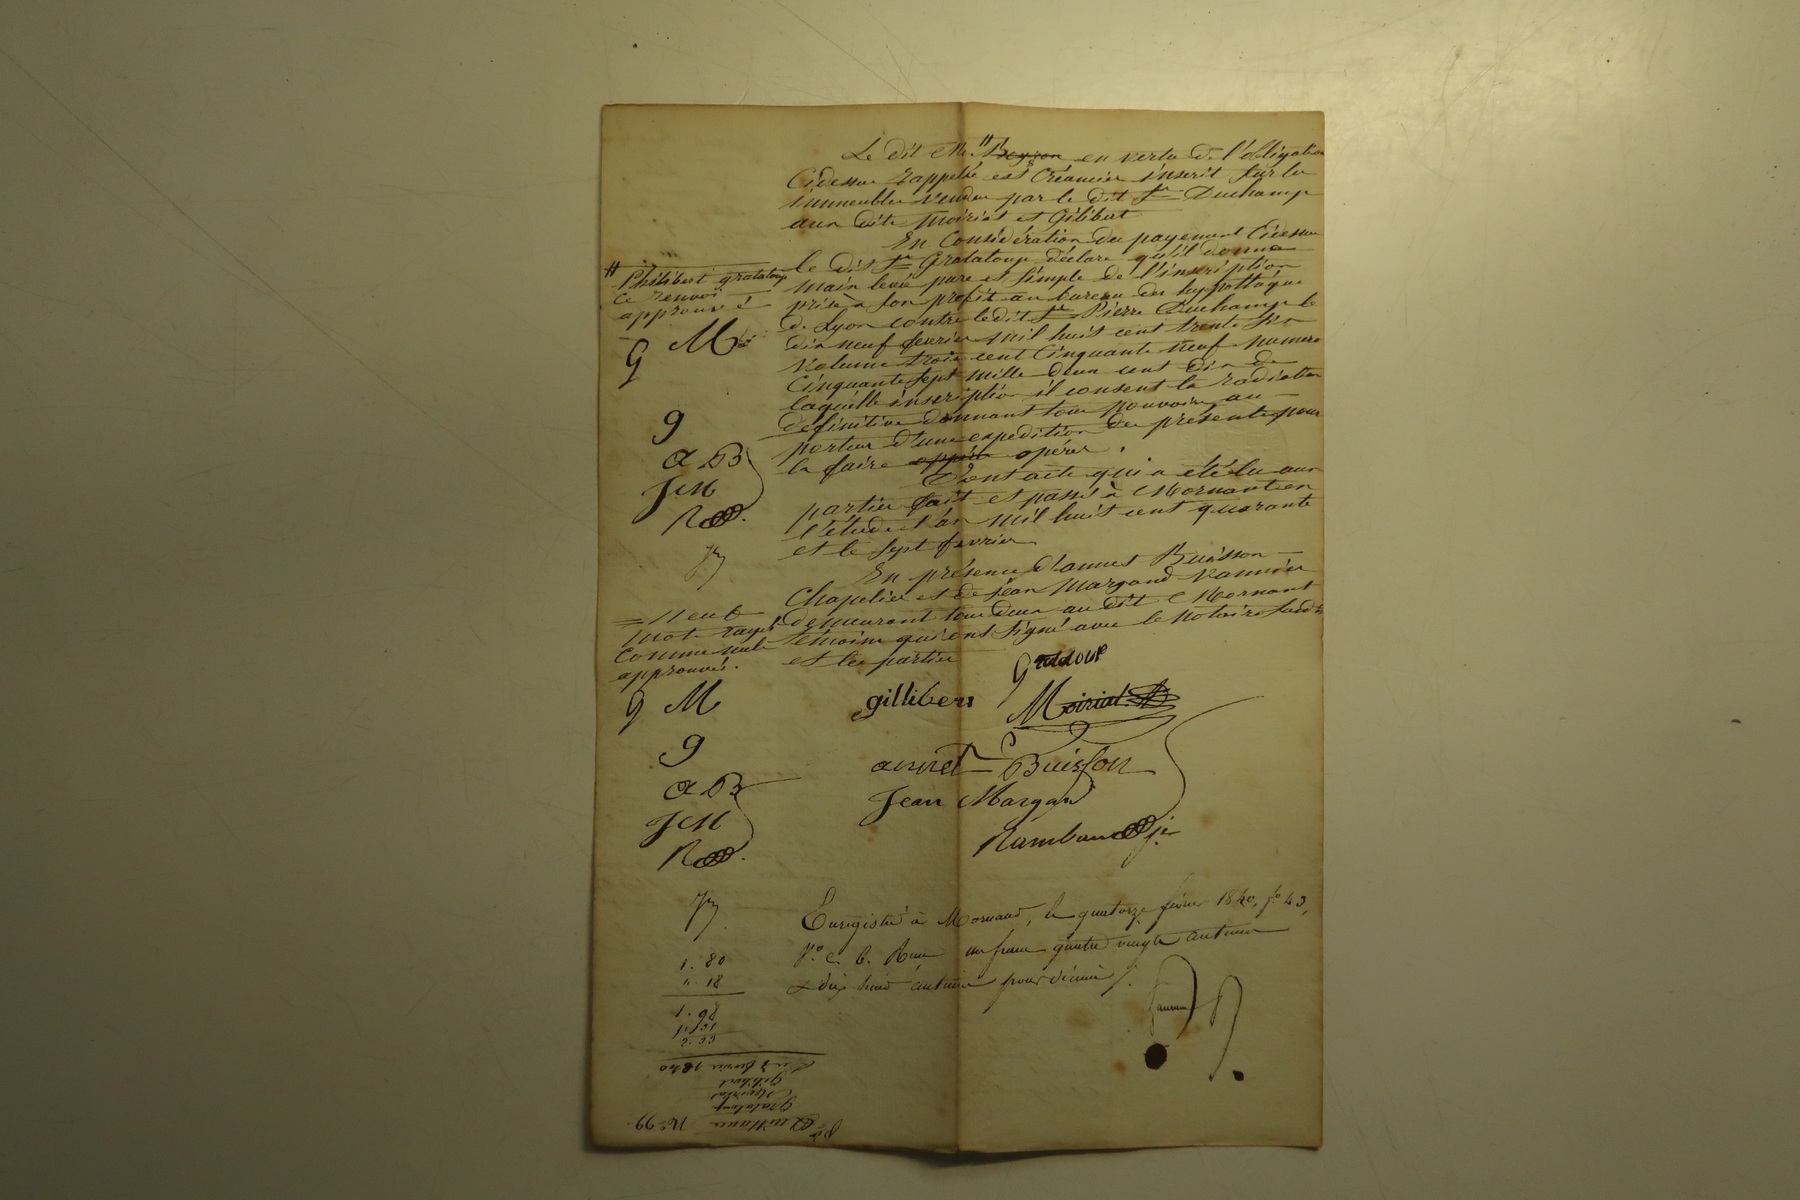 Le dit Me # Beyson en vertu de l'obligation
Cidessus Rappelée est Créancier inscrit sur les
immeubles vendus par le dit Sr Duchamp
aux dits Moiriat et Gilibert
En Considération du payement Cidessus
le dit Sr Grataloup déclare qu'il donne
main levée pure et simple de l'inscription
prise à son profit au bureau des hypothèque
de Lyon contre ledit Sr Pierre Duchamp le
dix neuf fevrier mil huit cent trente six
volume trois cent Cinquante neuf numero
Cinquante sept mille deux cent dix de
laquelle inscription il consent la radiation
définitive donnant tous pouvoirs au
porteur d'une expedition des présentes pour
la faire opérer.
Dont acte qui a été lu aux
parties fait et passé à Mornant en
l'étude l'an mil huit cent quarante
et le sept fevrier
En présence d'annet Buisson
Chapelier et de Jean Margand Vannier
demeurant tous deux au dit Mornant
témoins qui ont signé avec le Notaire
et les parties
# Philibert grataloup
ce renvoi
approuvé
g M
g
a B
J M
R
= Neuf
mots rayés
comme nuls
approuvés.
g M
g
a B
J M
R
gillibert
Moiriat
annet Buisson
Jean Margand
Rambaud je
Enregistré à Mornant, le quatorze février 1840, fo 43,
Vo. c. 6. Reçu un franc quatre vingts centimes
& dix huit centimes pour décime
1. 80
". 18
1. 98
Du 7 fevrier 1840
Gilibert
Moiriat
Grataloup
Quittance No 99